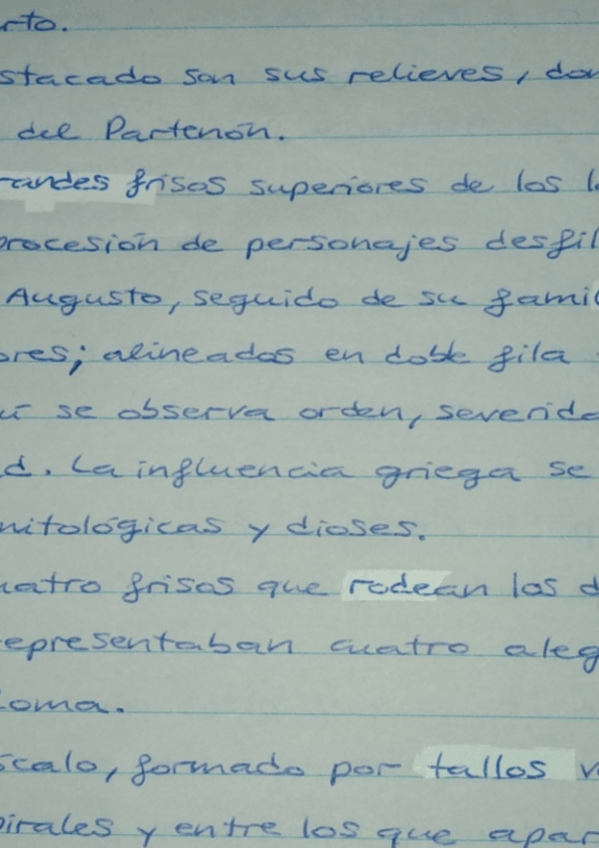 rto.
stacado son sus relieves, don
del Partenón.
randes frisos superiores de los l
procesión de personajes desfil
Augusto, seguido de su famil
ores; alineados en doble fila
uí se observa orden, severida
d. La influencia griega se
mitológicas y dioses.
uatro frisos que rodean los d
epresentaban cuatro aleg
oma.
scalo, formado por tallos v
pirales y entre los que apar